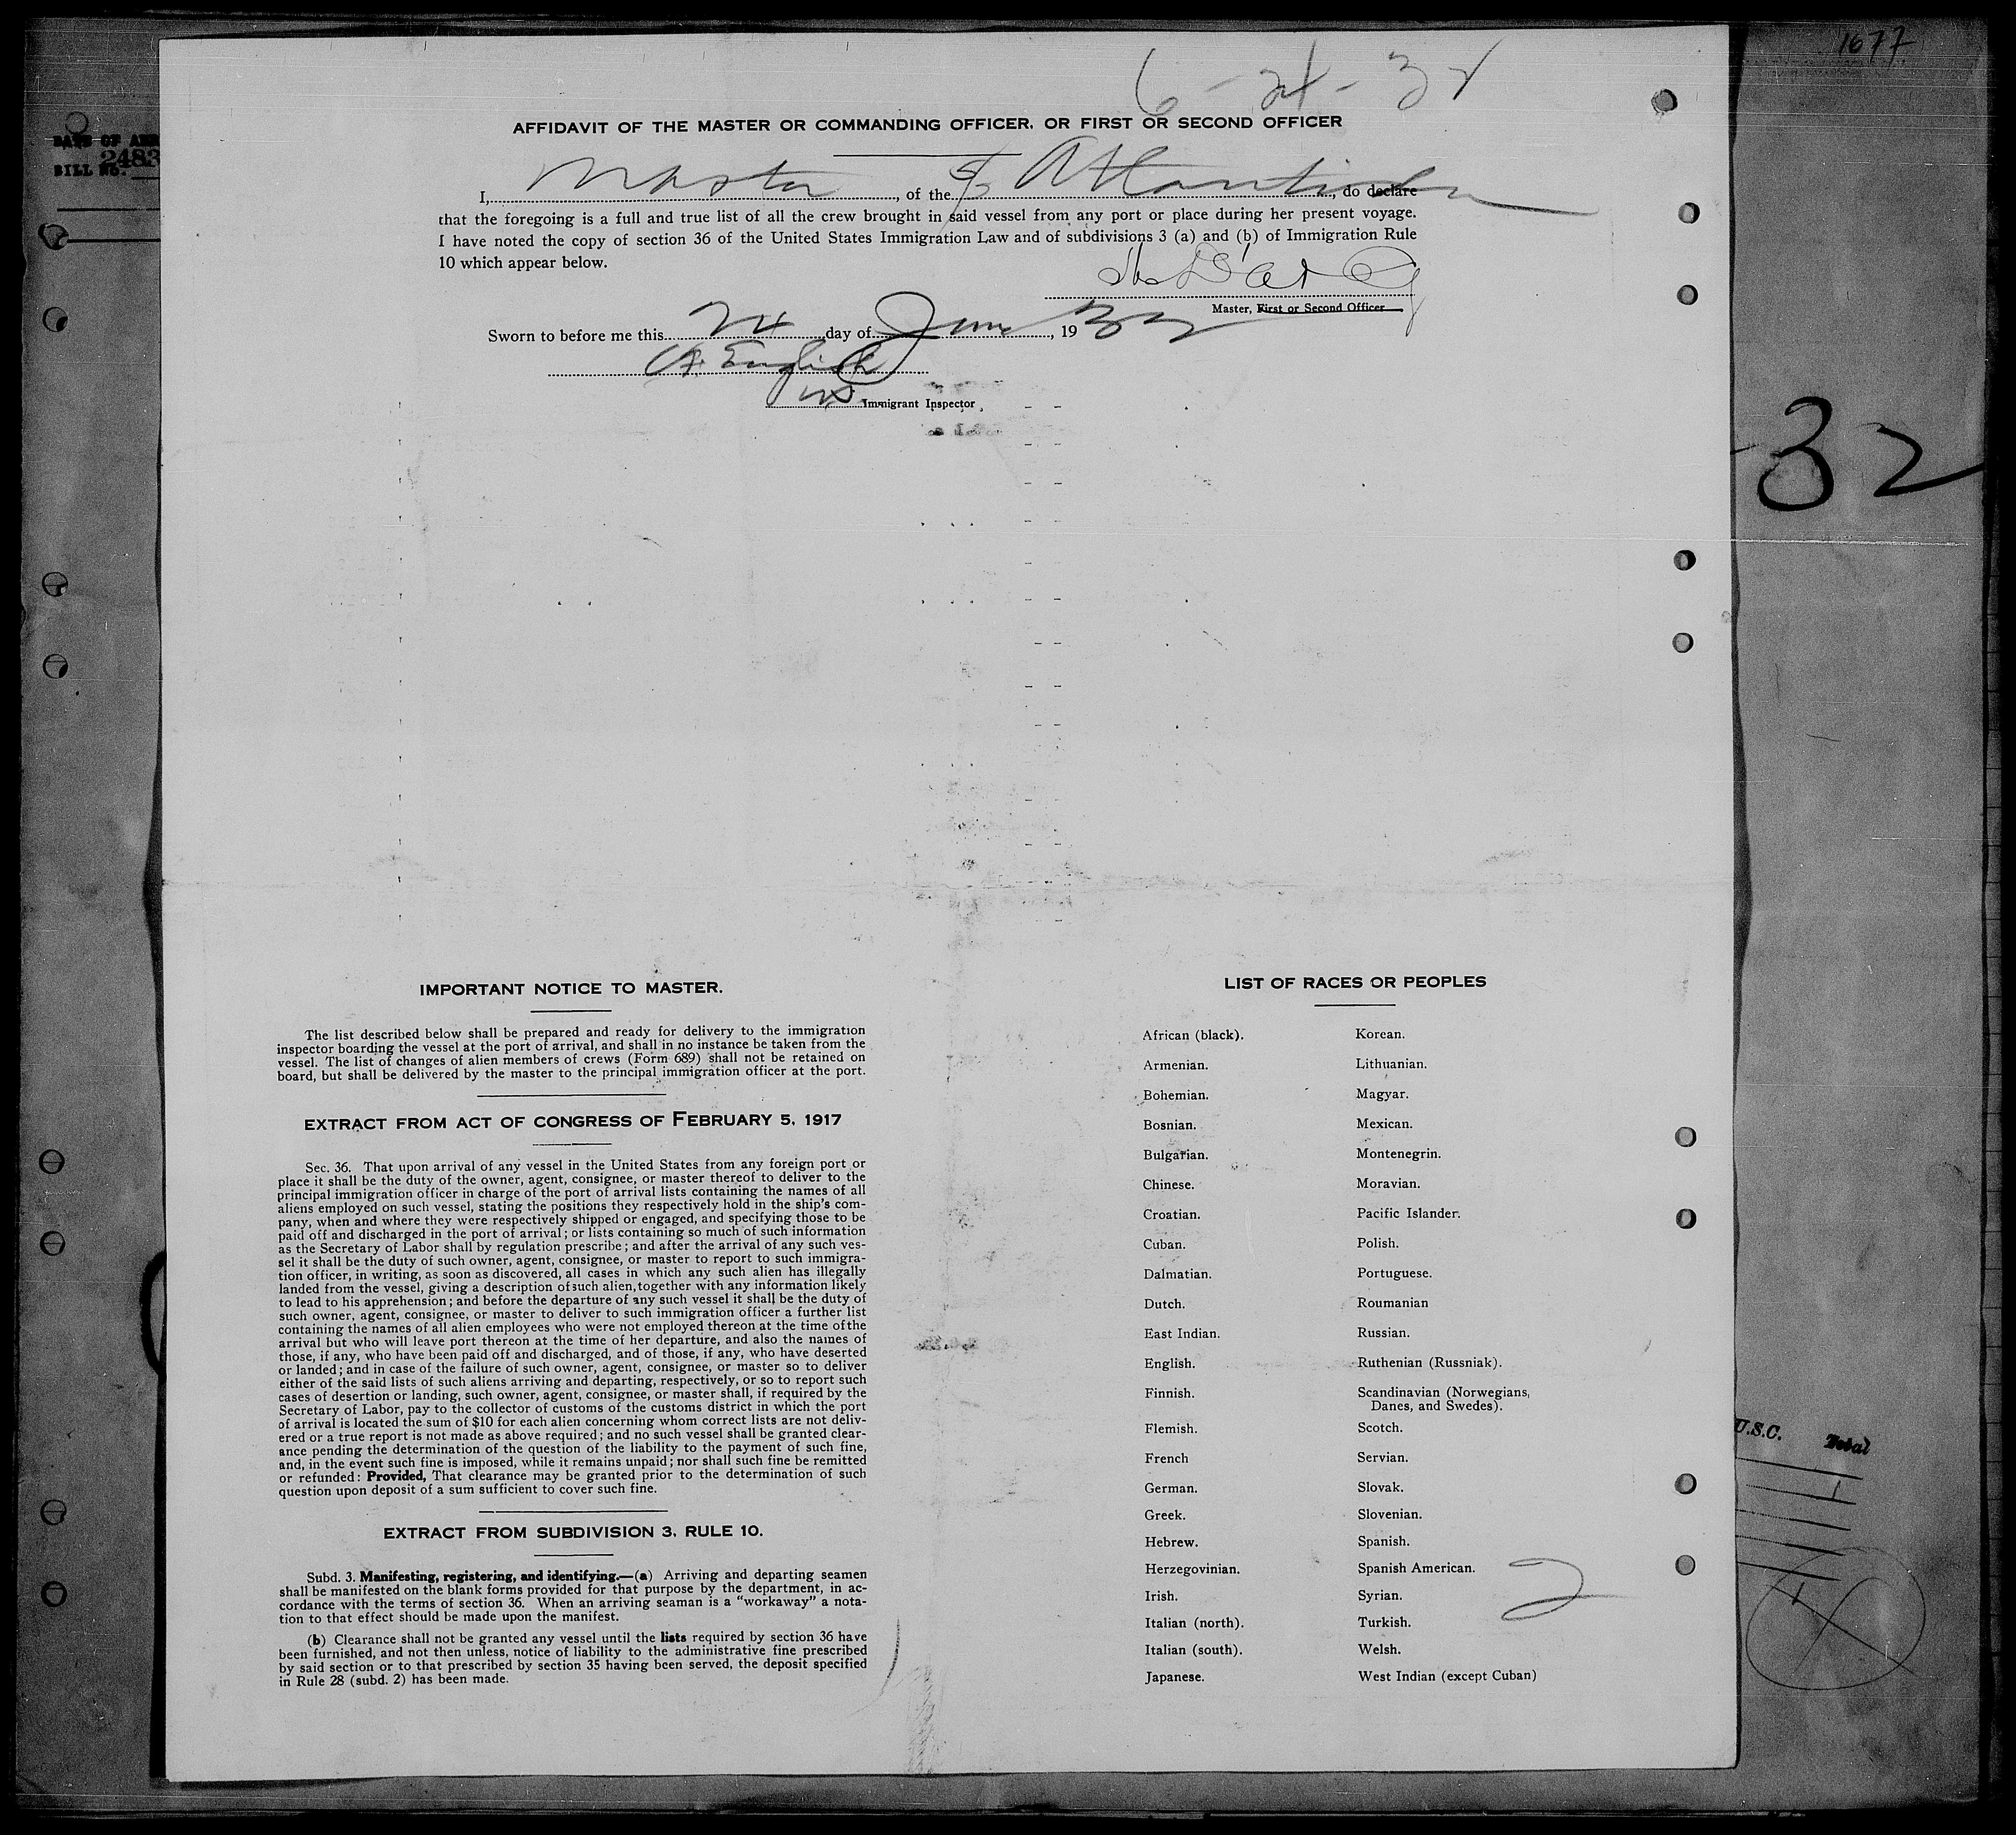 1677
6-24-32
DATE OF ARR
BILL NO. 2483
AFFIDAVIT OF THE MASTER OR COMMANDING OFFICER, OR FIRST OR SECOND OFFICER
I, Master, of the S/S Atlantida, do declare
that the foregoing is a full and true list of all the crew brought in said vessel from any port or place during her present voyage.
I have noted the copy of section 36 of the United States Immigration Law and of subdivisions 3 (a) and (b) of Immigration Rule
10 which appear below.
Master, First or Second Officer
Sworn to before me this 24 day of June, 1932
English
US Immigrant Inspector
32
IMPORTANT NOTICE TO MASTER.
The list described below shall be prepared and ready for delivery to the immigration
inspector boarding the vessel at the port of arrival, and shall in no instance be taken from the
vessel. The list of changes of alien members of crews (Form 689) shall not be retained on
board, but shall be delivered by the master to the principal immigration officer at the port.
EXTRACT FROM ACT OF CONGRESS OF FEBRUARY 5, 1917
Sec. 36. That upon arrival of any vessel in the United States from any foreign port or
place it shall be the duty of the owner, agent, consignee, or master thereof to deliver to the
principal immigration officer in charge of the port of arrival lists containing the names of all
aliens employed on such vessel, stating the positions they respectively hold in the ship's com-
pany, when and where they were respectively shipped or engaged, and specifying those to be
paid off and discharged in the port of arrival; or lists containing so much of such information
as the Secretary of Labor shall by regulation prescribe; and after the arrival of any such ves-
sel it shall be the duty of such owner, agent, consignee, or master to report to such immigra-
tion officer, in writing, as soon as discovered, all cases in which any such alien has illegally
landed from the vessel, giving a description of such alien, together with any information likely
to lead to his apprehension; and before the departure of any such vessel it shall be the duty of
such owner, agent, consignee, or master to deliver to such immigration officer a further list
containing the names of all alien employees who were not employed thereon at the time of the
arrival but who will leave port thereon at the time of her departure, and also the names of
those, if any, who have been paid off and discharged, and of those, if any, who have deserted
or landed; and in case of the failure of such owner, agent, consignee, or master so to deliver
either of the said lists of such aliens arriving and departing, respectively, or so to report such
cases of desertion or landing, such owner, agent, consignee, or master shall, if required by the
Secretary of Labor, pay to the collector of customs of the customs district in which the port
of arrival is located the sum of $10 for each alien concerning whom correct lists are not deliv-
ered or a true report is not made as above required; and no such vessel shall be granted clear-
ance pending the determination of the question of the liability to the payment of such fine,
and, in the event such fine is imposed, while it remains unpaid; nor shall such fine be remitted
or refunded: Provided, That clearance may be granted prior to the determination of such
question upon deposit of a sum sufficient to cover such fine.
EXTRACT FROM SUBDIVISION 3, RULE 10.
Subd. 3. Manifesting, registering, and identifying.—(a) Arriving and departing seamen
shall be manifested on the blank forms provided for that purpose by the department, in ac-
cordance with the terms of section 36. When an arriving seaman is a "workaway" a nota-
tion to that effect should be made upon the manifest.
(b) Clearance shall not be granted any vessel until the lists required by section 36 have
been furnished, and not then unless, notice of liability to the administrative fine prescribed
by said section or to that prescribed by section 35 having been served, the deposit specified
in Rule 28 (subd. 2) has been made.
LIST OF RACES OR PEOPLES
African (black). Korean.
Armenian. Lithuanian.
Bohemian. Magyar.
Bosnian. Mexican.
Bulgarian. Montenegrin.
Chinese. Moravian.
Croatian. Pacific Islander.
Cuban. Polish.
Dalmatian. Portuguese.
Dutch. Roumanian
East Indian. Russian.
English. Ruthenian (Russniak).
Finnish. Scandinavian (Norwegians,
Danes, and Swedes).
Flemish. Scotch.
French Servian.
German. Slovak.
Greek. Slovenian.
Hebrew. Spanish.
Herzegovinian. Spanish American.
Irish. Syrian.
Italian (north). Turkish.
Italian (south). Welsh.
Japanese. West Indian (except Cuban)
2
U.S.C. Total